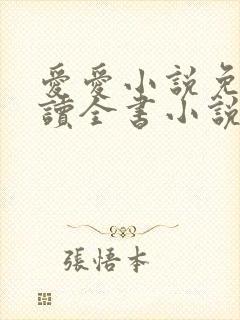 愛愛小説免
讀全書小説
張悟本